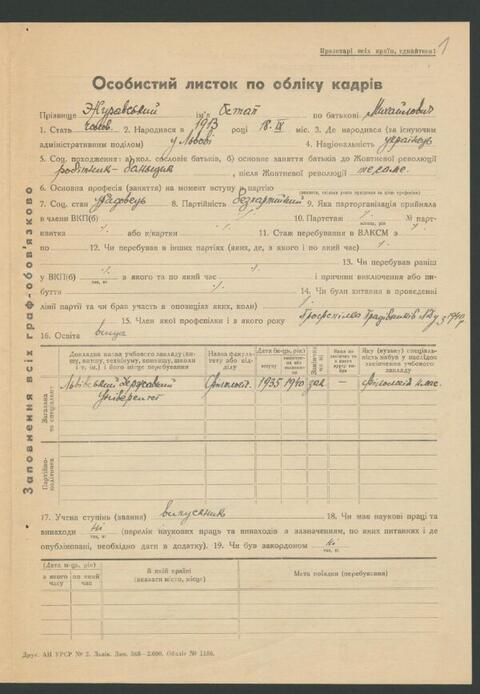 1
Пролетарі всіх країн, єднайтеся!
Особистий листок по обліку кадрів
Прізвище Журавський ім'я Остап по батькові Михайлович
1. Стать чолов. 2. Народився в 1913 році 18.IV міс. 3. Де народився (за існуючим
адміністративним поділом) у Львові 4. Національність українець
5. Соц. походження: а) кол. сословіє батьків, б) основне заняття батьків до Жовтневої революції
робітник- , після Жовтневої революції
6. Основна професія (заняття) на момент вступу в партію
7. Соц. стан урядовець 8. Партійність безпартійний 9. Яка парторганізація прийняла
в члени ВКП(б) 10. Партстаж № парт-
квитка або к/картки 11. Стаж перебування в ВЛКСМ з
по 12. Чи перебував в інших партіях (яких, де, з якого і по який час)
13. Чи перебував раніш
у ВКП(б) в якого та по який час і причини виключення або ви-
буття 14. Чи були хитання в проведенні
лінії партії та чи брав участь в опозиціях (яких, коли)
15. Член якої профспілки і з якого року Профспілка 1940 р.
16. Освіта вища
Заповнення всіх граф-обов'язково
Докладна назва учбового закладу
і його місце перебування
Назва факультету або відділу
Дата (м-ць, рік)
вступу
Яку (вузьку) спеціальність набув у наслідок закінчення учбового закладу
Загальна та спеціальна
Львівський Державний Університет
Філолог. 1935 1940 —
Партійно-політична
17. Учена ступінь (звання) випускник 18. Чи має наукові праці та
винаходи ні (перелік наукових праць та винаходів з зазначенням, по яких питаннях і де
опубліковані, необхідно дати в додатку). 19. Чи був закордоном ні
Дата (м-ць, рік)
з якого часу
по який час
В якій країні
(вказати місто, місце)
Мета поїздки (перебування)
Друк. АН УРСР № 2. Львів. Зам. 568—2.000. Обліт №